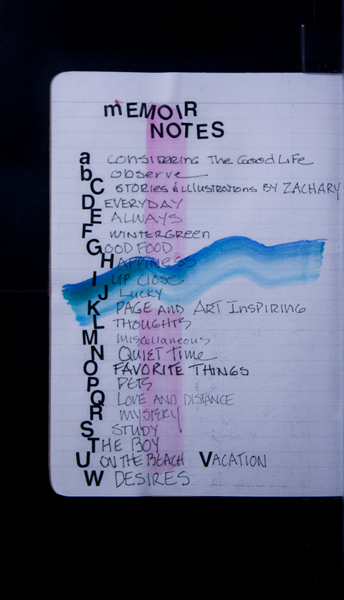 mEMOIR
NOTES
a CONSIDERING The Good Life
b observe
C STORIES & ILLUSTRATIONS BY ZACHARY
D EVERYDAY
E ALWAYS
F WINTERGREEN
G OOD FOOD
H APPINESS
I UP CLOSE
J LUCKY
K PAGE AND ART INSPIRING
L THOUGHTS
M miscellaneous
N QUIET TIME
O FAVORITE THINGS
P PETS
Q LOVE AND DISTANCE
R MYSTERY
S STUDY
T HE BOY
U ON THE BEACH VACATION
W DESIRES